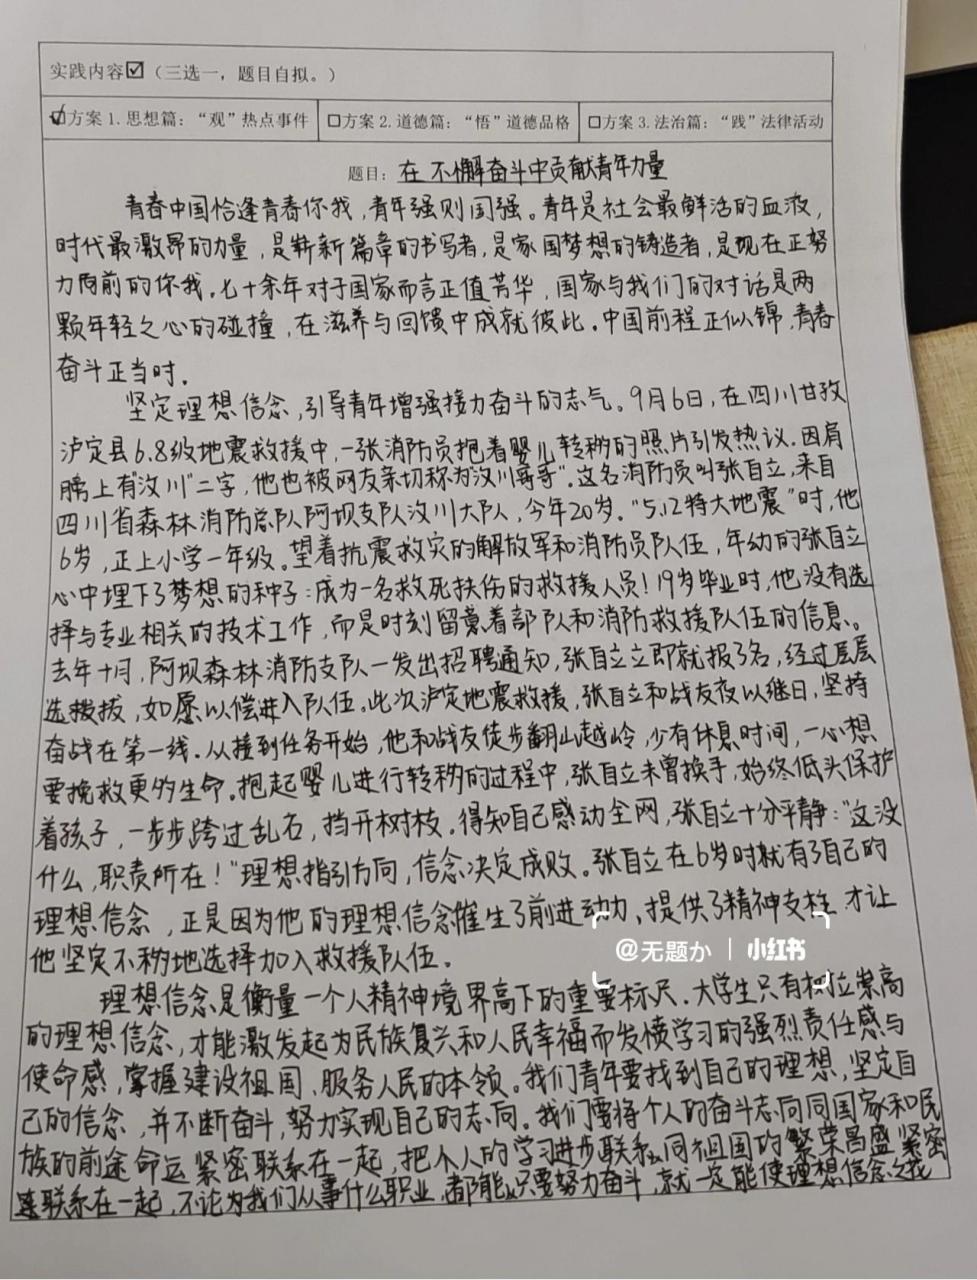 实践内容☑（三选一，题目自拟。）
☑方案 1. 思想篇：“观”热点事件 □方案 2. 道德篇：“悟”道德品格 □方案 3. 法治篇：“践”法律活动
题目：在不懈奋斗中贡献青年力量
青春中国恰逢青春你我，青年强则国强。青年是社会最鲜活的血液，
时代最激昂的力量，是崭新篇章的书写者，是家国梦想的铸造者，是现在正努
力向前的你我。七十余年对于国家而言正值芳华，国家与我们的对话是两
颗年轻之心的碰撞，在滋养与回馈中成就彼此。中国前程正似锦，青春
奋斗正当时。
坚定理想信念，引导青年增强接力奋斗的志气。9月6日，在四川甘孜
泸定县6.8级地震救援中，一张消防员抱着婴儿转移的照片引发热议。因肩
膀上有“汶川”二字，他也被网友亲切称为“汶川哥哥”。这名消防员叫张自立，来自
四川省森林消防总队阿坝支队汶川大队，今年20岁。“5.12特大地震”时，他
6岁，正上小学一年级。望着抗震救灾的解放军和消防员队伍，年幼的张自立
心中埋下了梦想的种子：成为一名救死扶伤的救援人员！19岁毕业时，他没有选
择与专业相关的技术工作，而是时刻留意着部队和消防救援队伍的信息。
去年十月，阿坝森林消防支队一发出招聘通知，张自立立即就报了名，经过层层
选拨拔，如愿以偿进入队伍。此次泸定地震救援，张自立和战友夜以继日，坚持
奋战在第一线。从接到任务开始，他和战友徒步翻山越岭，少有休息时间，一心想
要挽救更多生命。抱起婴儿进行转移的过程中，张自立未曾换手，始终低头保护
着孩子，一步步跨过乱石，挡开树枝。得知自己感动全网，张自立十分平静：“这没
什么，职责所在！”理想指引方向，信念决定成败。张自立在6岁时就有了自己的
理想信念，正是因为他的理想信念催生了前进动力，提供了精神支柱，才让
他坚定不移地选择加入救援队伍。
@无题か | 小红书
理想信念是衡量一个人精神境界高下的重要标尺。大学生只有树立崇高
的理想信念，才能激发起为民族复兴和人民幸福而发愤学习的强烈责任感与
使命感，掌握建设祖国、服务人民的本领。我们青年要找到自己的理想，坚定自
己的信念，并不断奋斗，努力实现自己的志向。我们要将个人的奋斗志向同国家和民
族的前途命运紧密联系在一起，把个人的学习进步联系同祖国的繁荣昌盛紧密
联系在一起，不论为我们从事什么职业，都能只要努力奋斗，就一定能使理想信念之花